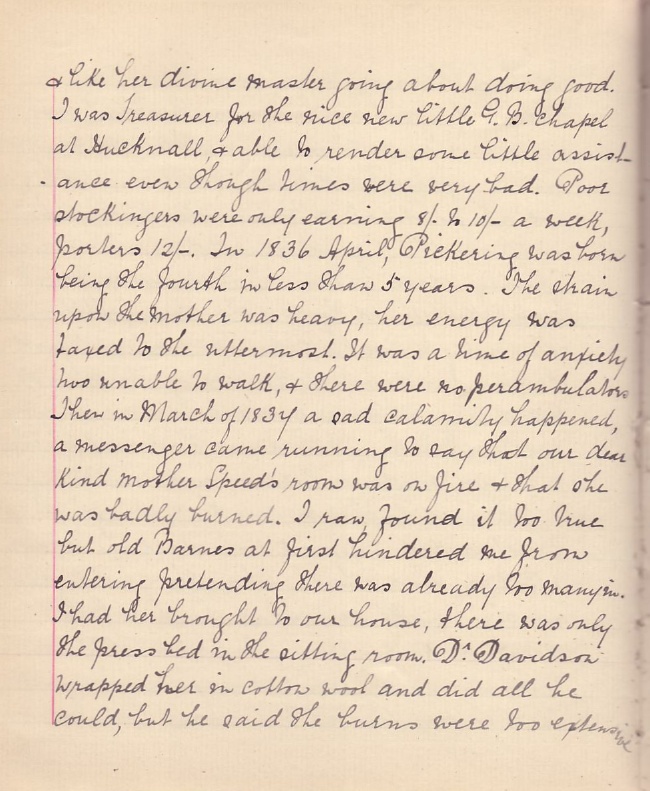 & like her divine master going about doing good.
I was Treasurer for the nice new little G. B. Chapel
at Hucknall, & able to render some little assist-
ance even though times were very bad. Poor
stockingers were only earning 8/- to 10/- a week,
porters 12/-. In 1836 April, Pickering was born
being the fourth in less than 5 years. The strain
upon the mother was heavy, her energy was
taxed to the uttermost. It was a time of anxiety
two unable to walk, & there were no perambulators
Then in March of 1837 a sad calamity happened,
a messenger came running to say that our dear
kind mother Speed's room was on fire & that she
was badly burned. I ran, found it too true
but old Barnes at first hindered me from
entering pretending there was already too many in.
I had her brought to our house, there was only
the press bed in the sitting room. Dr Davidson
wrapped her in cotton wool and did all he
could, but he said the burns were too extensive